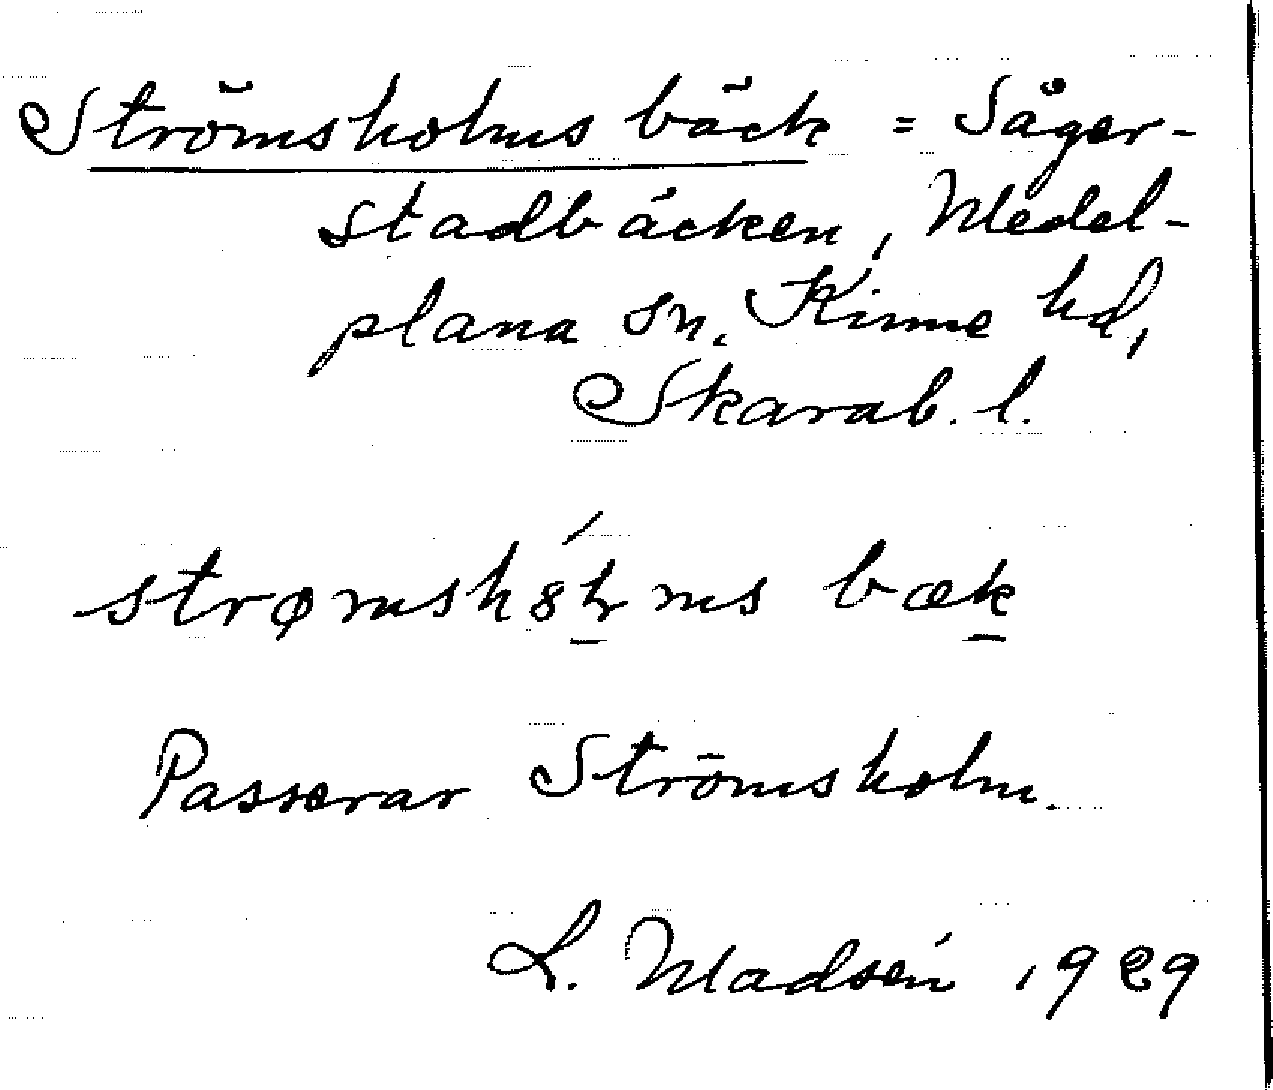 Strömsholms bäck = Såger-
stadbäcken, Medel-
plana sn. Kinne hd,
Skarab. l.
bæk
Passerar Strömsholm.
L. Madsén 1929